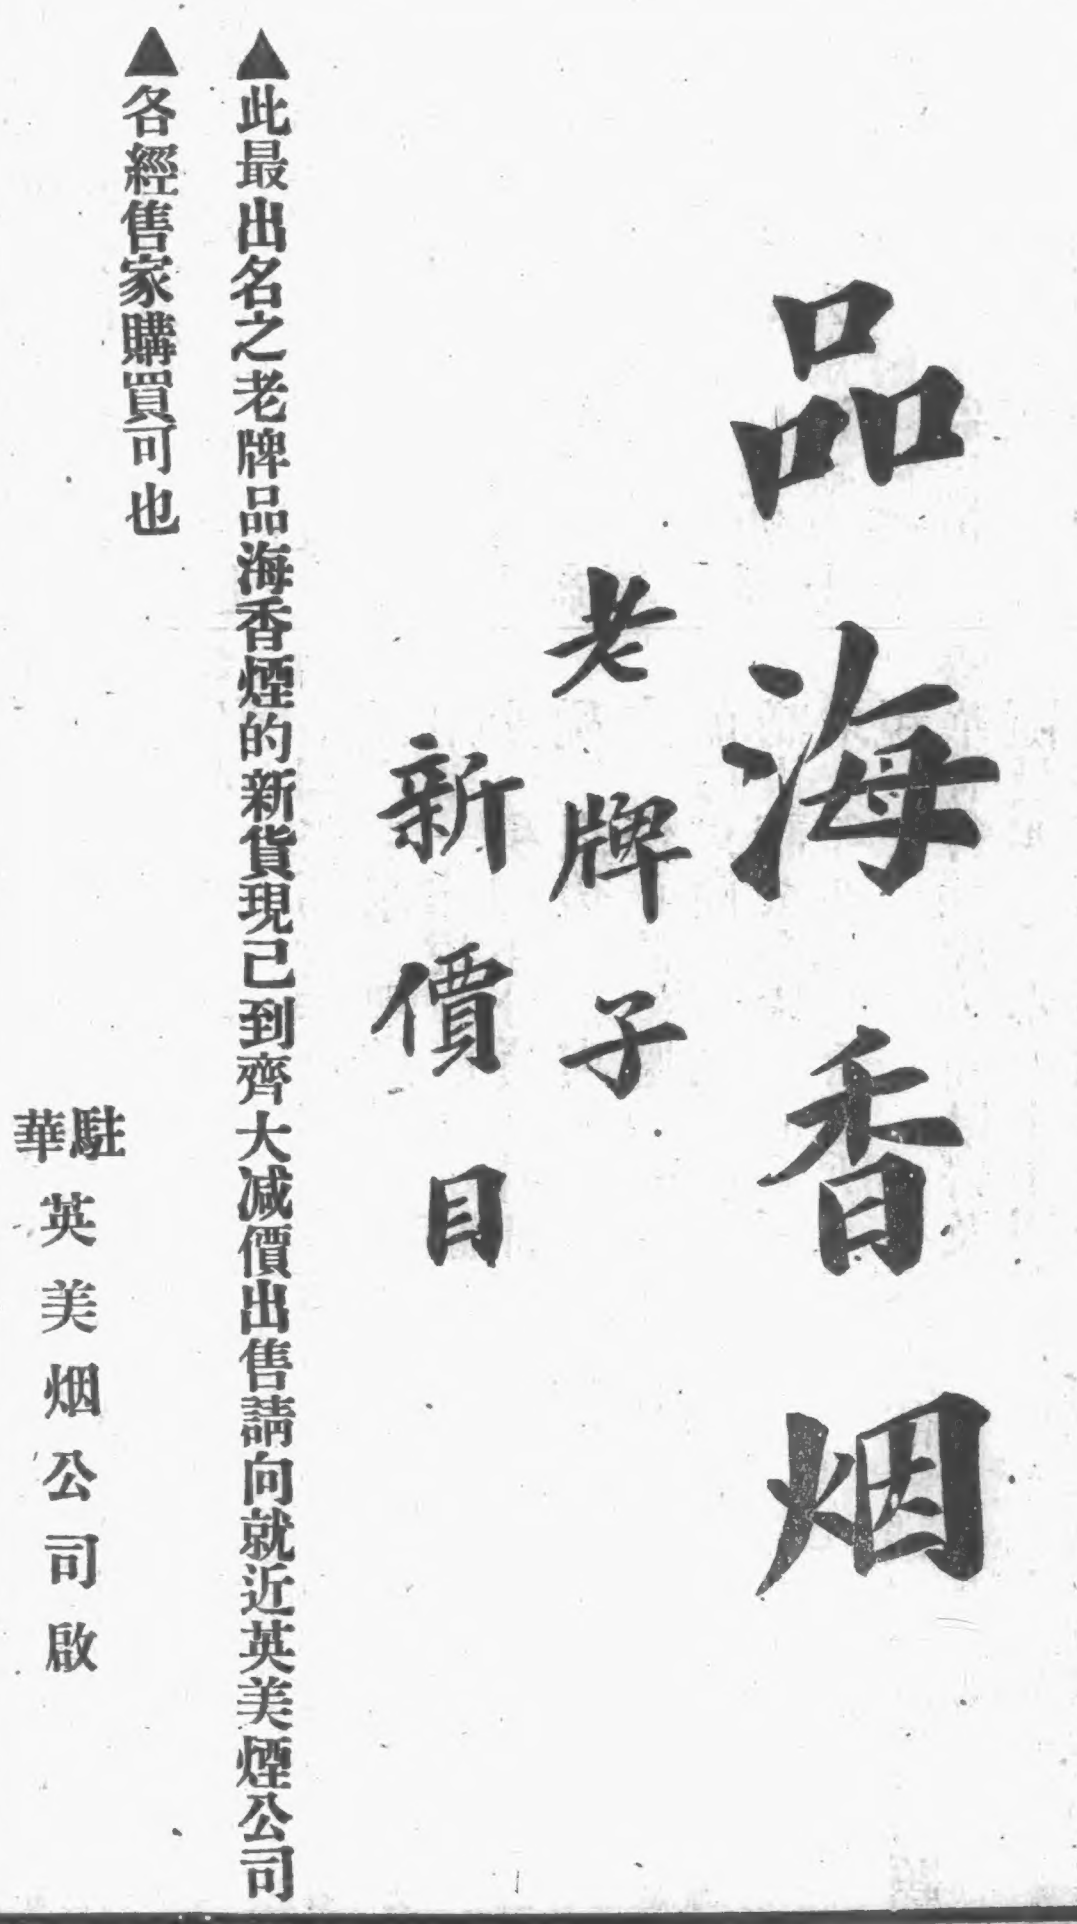 品海香烟
老牌子
新價目
▲此最出名之老牌品海香煙的新貨現己到齊大減價出售請向就近英美煙公司
▲各經售家購買可也
駐華英美烟公司啟